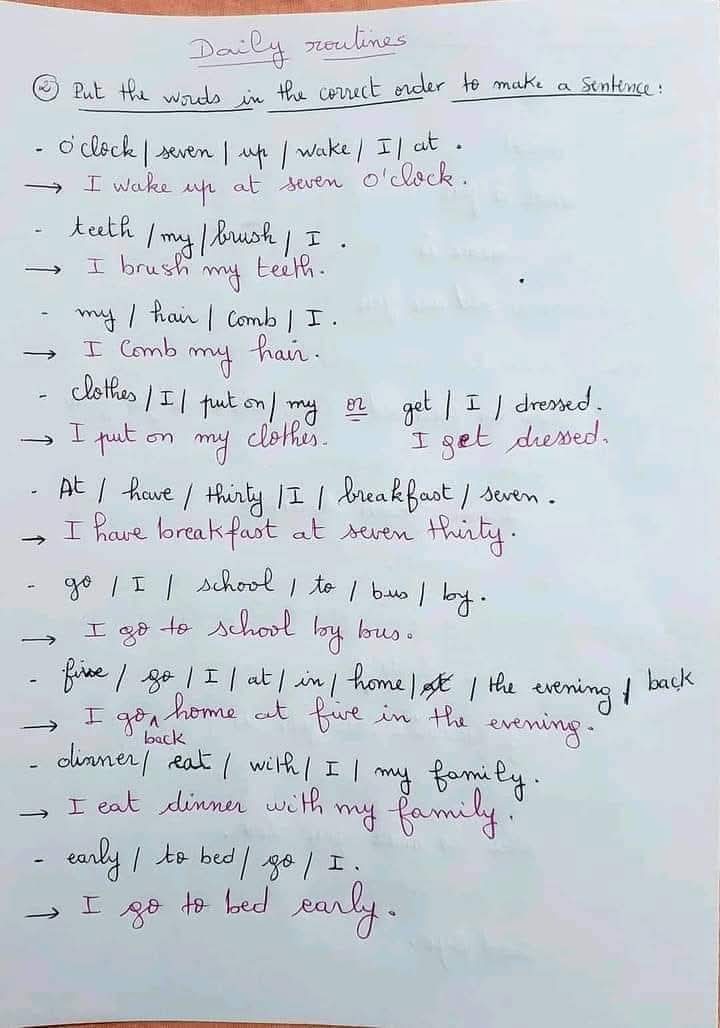 Daily routines
② Put the words in the correct order to make a sentence:
- O'clock / seven / up / wake / I / at.
→ I wake up at seven o'clock.
- teeth / my / brush / I.
→ I brush my teeth.
- my / hair / comb / I.
→ I comb my hair.
- clothes / I / put on / my or get / I / dressed.
→ I put on my clothes. I get dressed.
- At / have / thirty / I / breakfast / seven.
→ I have breakfast at seven thirty.
- go / I / school / to / bus / by.
→ I go to school by bus.
- five / go / I / at / in / home / at / the evening / back
→ I go home at five in the evening.
back
- dinner / eat / with / I / my family.
→ I eat dinner with my family.
- early / to bed / go / I.
→ I go to bed early.